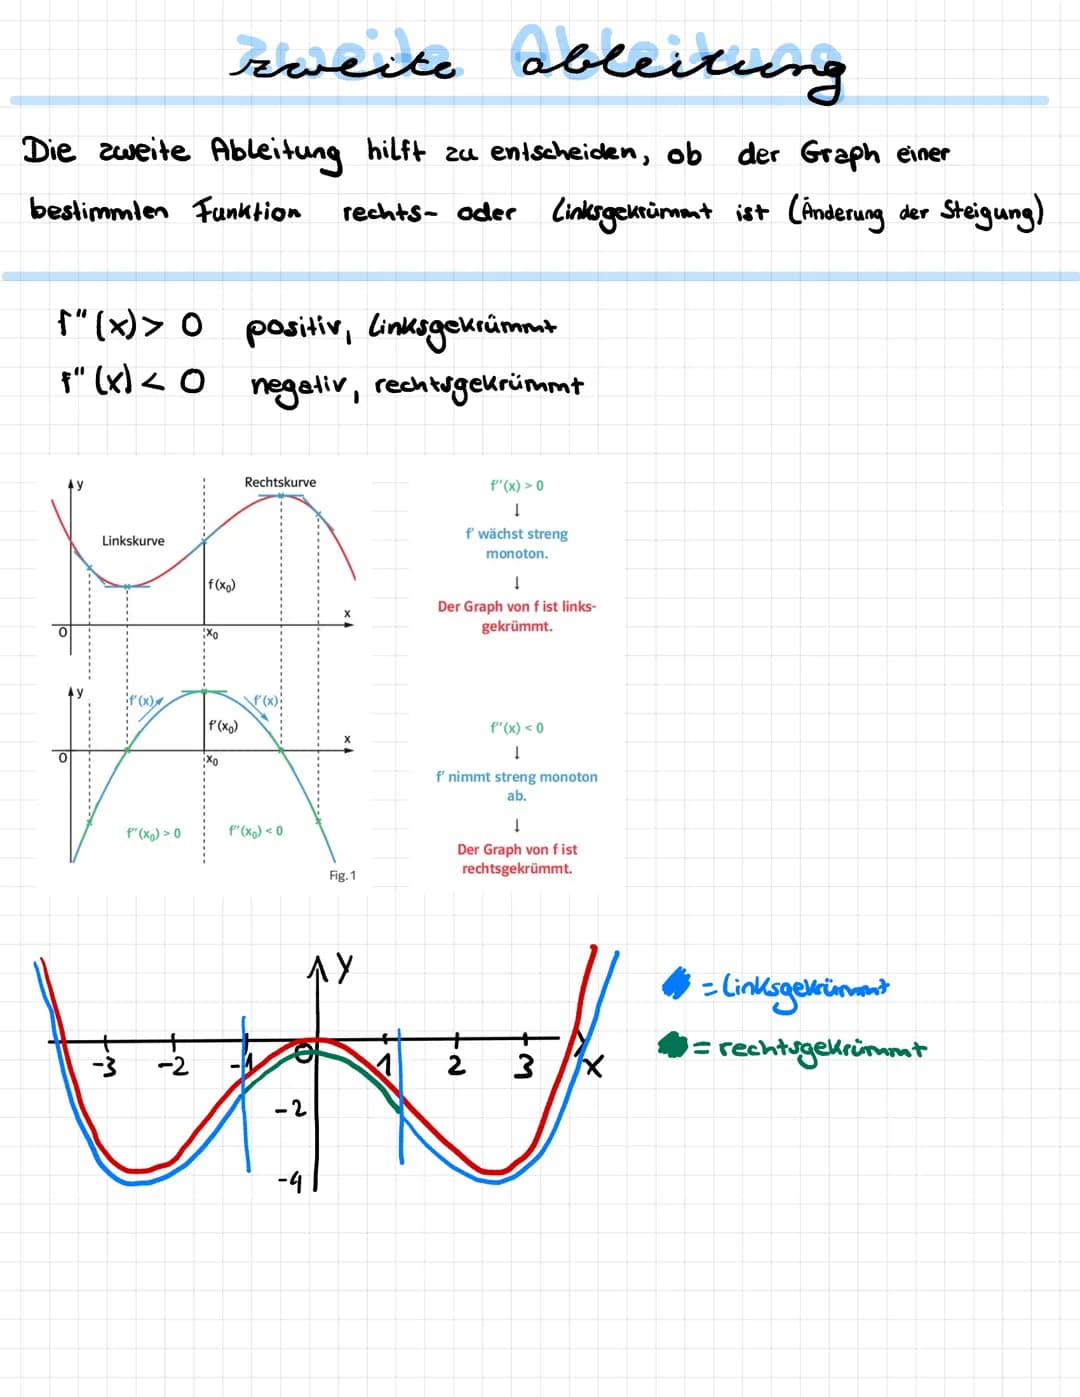 zweite Ableitung
zweite ableitung
Die zweite Ableitung hilft zu entscheiden, ob der Graph einer
bestimmten Funktion rechts- oder Linksgekrümmt ist (Änderung der Steigung)
f"(x) > 0 positiv, Linksgekrümmt
f"(x) < 0 negativ, rechtsgekrümmt
y
Rechtskurve
Linkskurve
f(x₀)
x
0
x₀
f''(x) > 0
↓
f' wächst streng
monoton.
↓
Der Graph von f ist links-
gekrümmt.
y
f'(x)
f'(x)
f'(x₀)
x
0
x₀
f''(x₀) > 0
f''(x₀) < 0
Fig. 1
f''(x) < 0
↓
f' nimmt streng monoton
ab.
↓
Der Graph von f ist
rechtsgekrümmt.
y
= Linksgekrümmt
= rechtsgekrümmt
-3 -2 -1 0 1 2 3 x
-2
-4